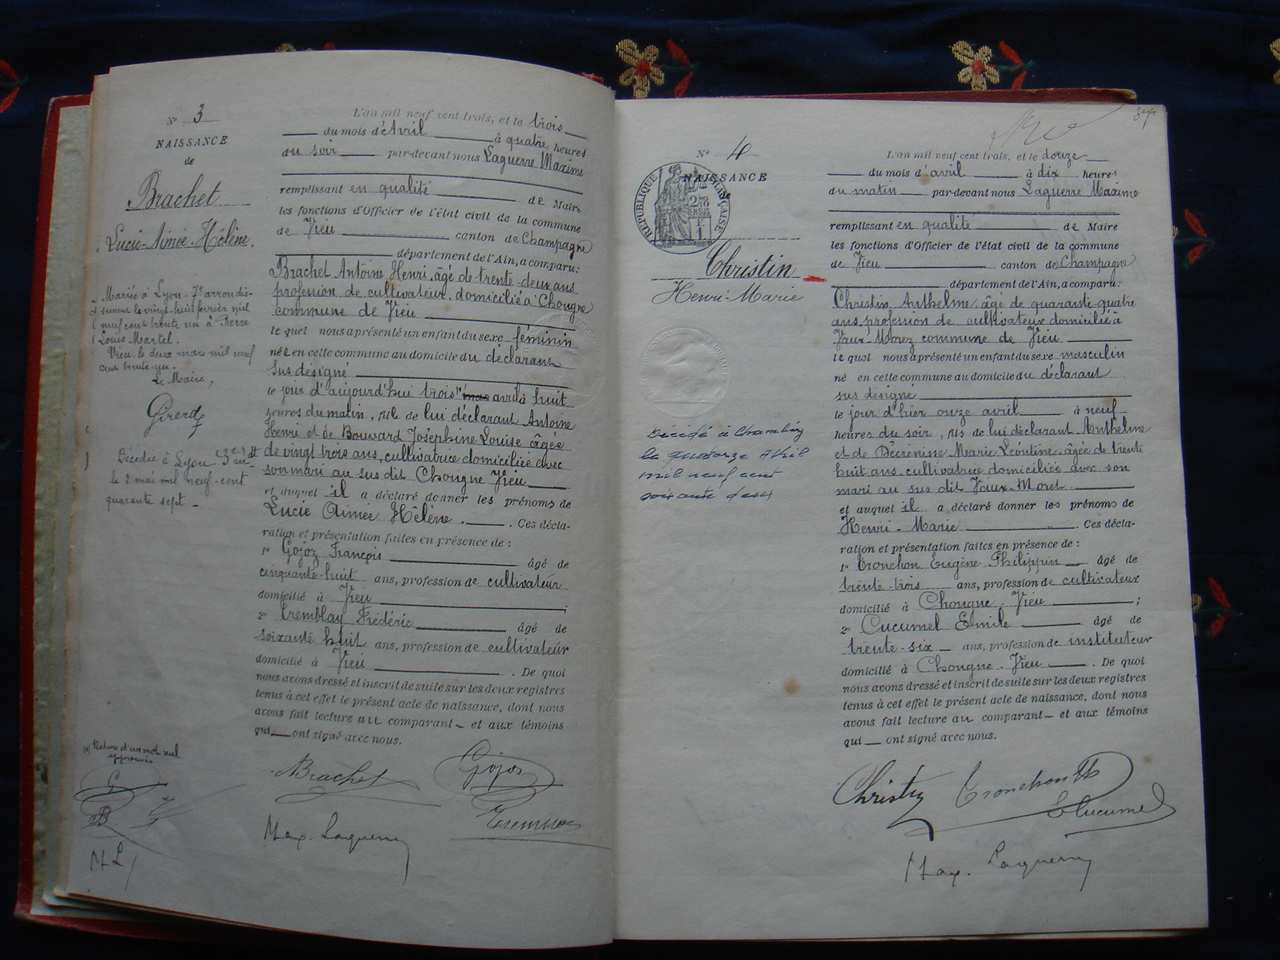 N° 3
NAISSANCE
de
Brachet
Lucie-Aimée-Hélène.
Mariée à Lyon 7e arrondis-
sement le vingt huit février mil
neuf cent trente un à Pierre
Louis Martel.
Vieu, le deux mars mil neuf
cent trente-un.
Le Maire,
Décédée à Lyon
le 2 mai mil neuf-cent
quarante sept.
L'an mil neuf cent trois, et le trois
du mois d'Avril à quatre heures
du soir par-devant nous Laguerre Maxime
remplissant en qualité de Maire
les fonctions d'Officier de l'état civil de la commune
de Vieu canton de Champagne
département de l'Ain, a comparu:
Brachet Antoine Henri, âgé de trente-deux ans
profession de cultivateur, domicilié à Chongne
commune de Vieu
lequel nous a présenté un enfant du sexe féminin
née en cette commune au domicile du déclarant
sus désigné
le jour d'aujourd'hui trois avril à huit
heures du matin, de lui déclarant Antoine
Henri et de Bouvard Joséphine Louise âgée
de vingt trois ans, cultivatrice domiciliée avec
son mari au sus dit Chongne Vieu
et auquel il a déclaré donner les prénoms de
Lucie Aimée Hélène. Ces décla-
ration et présentation faites en présence de :
1° Gojoz François âgé de
cinquante-huit ans, profession de cultivateur
domicilié à Vieu ;
2° Tremblay Frédéric âgé de
soixante huit ans, profession de cultivateur
domicilié à Vieu . De quoi
nous avons dressé et inscrit de suite sur les deux registres
tenus à cet effet le présent acte de naissance, dont nous
avons fait lecture au comparant et aux témoins
qui ont signé avec nous.
Rature d'un mot nul
approuvée
Brachet Gojoz
Max. Laguerre
M L
N° 4
NAISSANCE
RÉPUBLIQUE FRANÇAISE
Christin
Henri-Marie
Décédé à Chambéry
le quatorze Avril
mil neuf cent
soixante deux
L'an mil neuf cent trois, et le douze
du mois d'avril à dix heures
du matin par-devant nous Laguerre Maxime
remplissant en qualité de Maire
les fonctions d'Officier de l'état civil de la commune
de Vieu canton de Champagne
département de l'Ain, a comparu:
Christin Anthelme, âgé de quarante quatre
ans, profession de cultivateur domicilié à
Vaux-Morez commune de Vieu
lequel nous a présenté un enfant du sexe masculin
né en cette commune au domicile du déclarant
sus désigné
le jour d'hier onze avril à neuf
heures du soir, fils de lui déclarant Anthelme
et de Marie Léontine, âgée de trente
huit ans, cultivatrice domiciliée avec son
mari au sus dit Vaux-Moret
et auquel il a déclaré donner les prénoms de
Henri-Marie Ces décla-
ration et présentation faites en présence de :
1° Tronchon Eugène Philippin âgé de
trente-trois ans, profession de cultivateur
domicilié à Chongne-Vieu ;
2° Cucumel Emile âgé de
trente-six ans, profession de instituteur
domicilié à Chongne-Vieu . De quoi
nous avons dressé et inscrit de suite sur les deux registres
tenus à cet effet le présent acte de naissance, dont nous
avons fait lecture au comparant et aux témoins
qui ont signé avec nous.
Christin Tronchon
Cucumel
Max. Laguerre